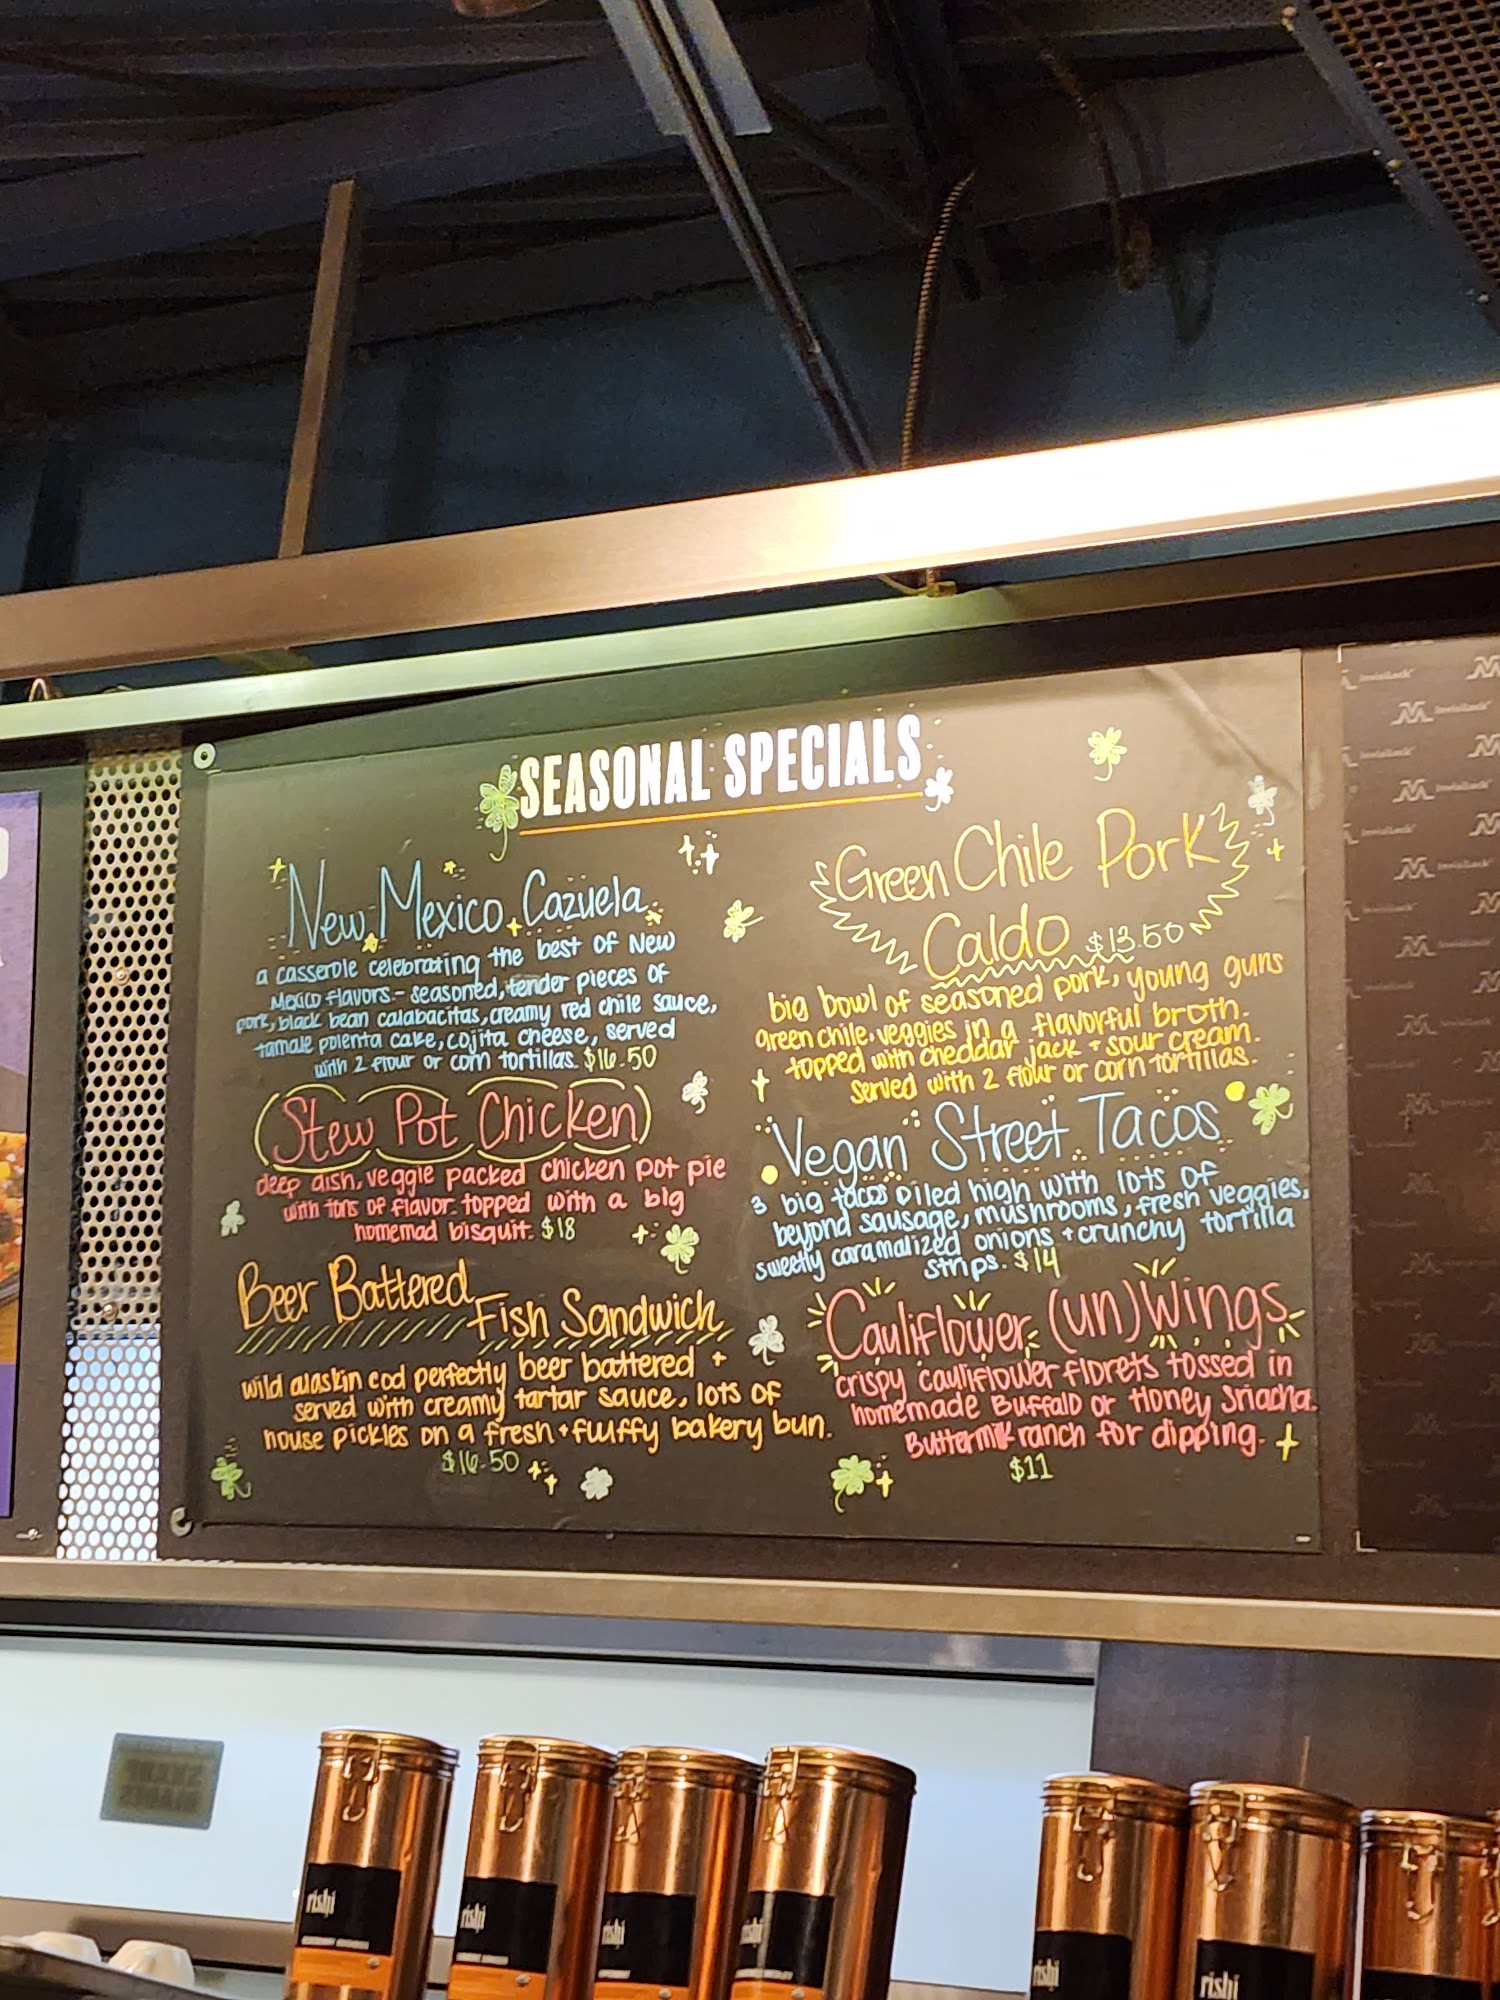 SEASONAL SPECIALS
New Mexico Cazuela
a casserole celebrating the best of New
Mexico flavors - seasoned, tender pieces of
pork, black bean calabacitas, creamy red chile sauce,
tamale polenta cake, cojita cheese, served
with 2 flour or corn tortillas. $16.50
(Stew Pot Chicken)
deep dish, veggie packed chicken pot pie
with tons of flavor topped with a big
homemad bisquit. $18
Beer Battered
Fish Sandwich
wild alaskin cod perfectly beer battered +
served with creamy tartar sauce, lots of
house pickles on a fresh + fluffy bakery bun.
$16.50
Green Chile Pork
Caldo $13.50
big bowl of seasoned pork, young guns
green chile, veggies in a flavorful broth.
topped with cheddar jack + sour cream.
served with 2 flour or corn tortillas.
Vegan Street Tacos
3 big tacos piled high with lots of
beyond sausage, mushrooms, fresh veggies,
sweetly caramalized onions + crunchy tortilla
strips. $14
Cauliflower (un)Wings
crispy cauliflower florets tossed in
homemade Buffalo or Honey Sriacha.
Buttermilk ranch for dipping.
$11
rishi
rishi
rishi
rishi
rishi
rishi